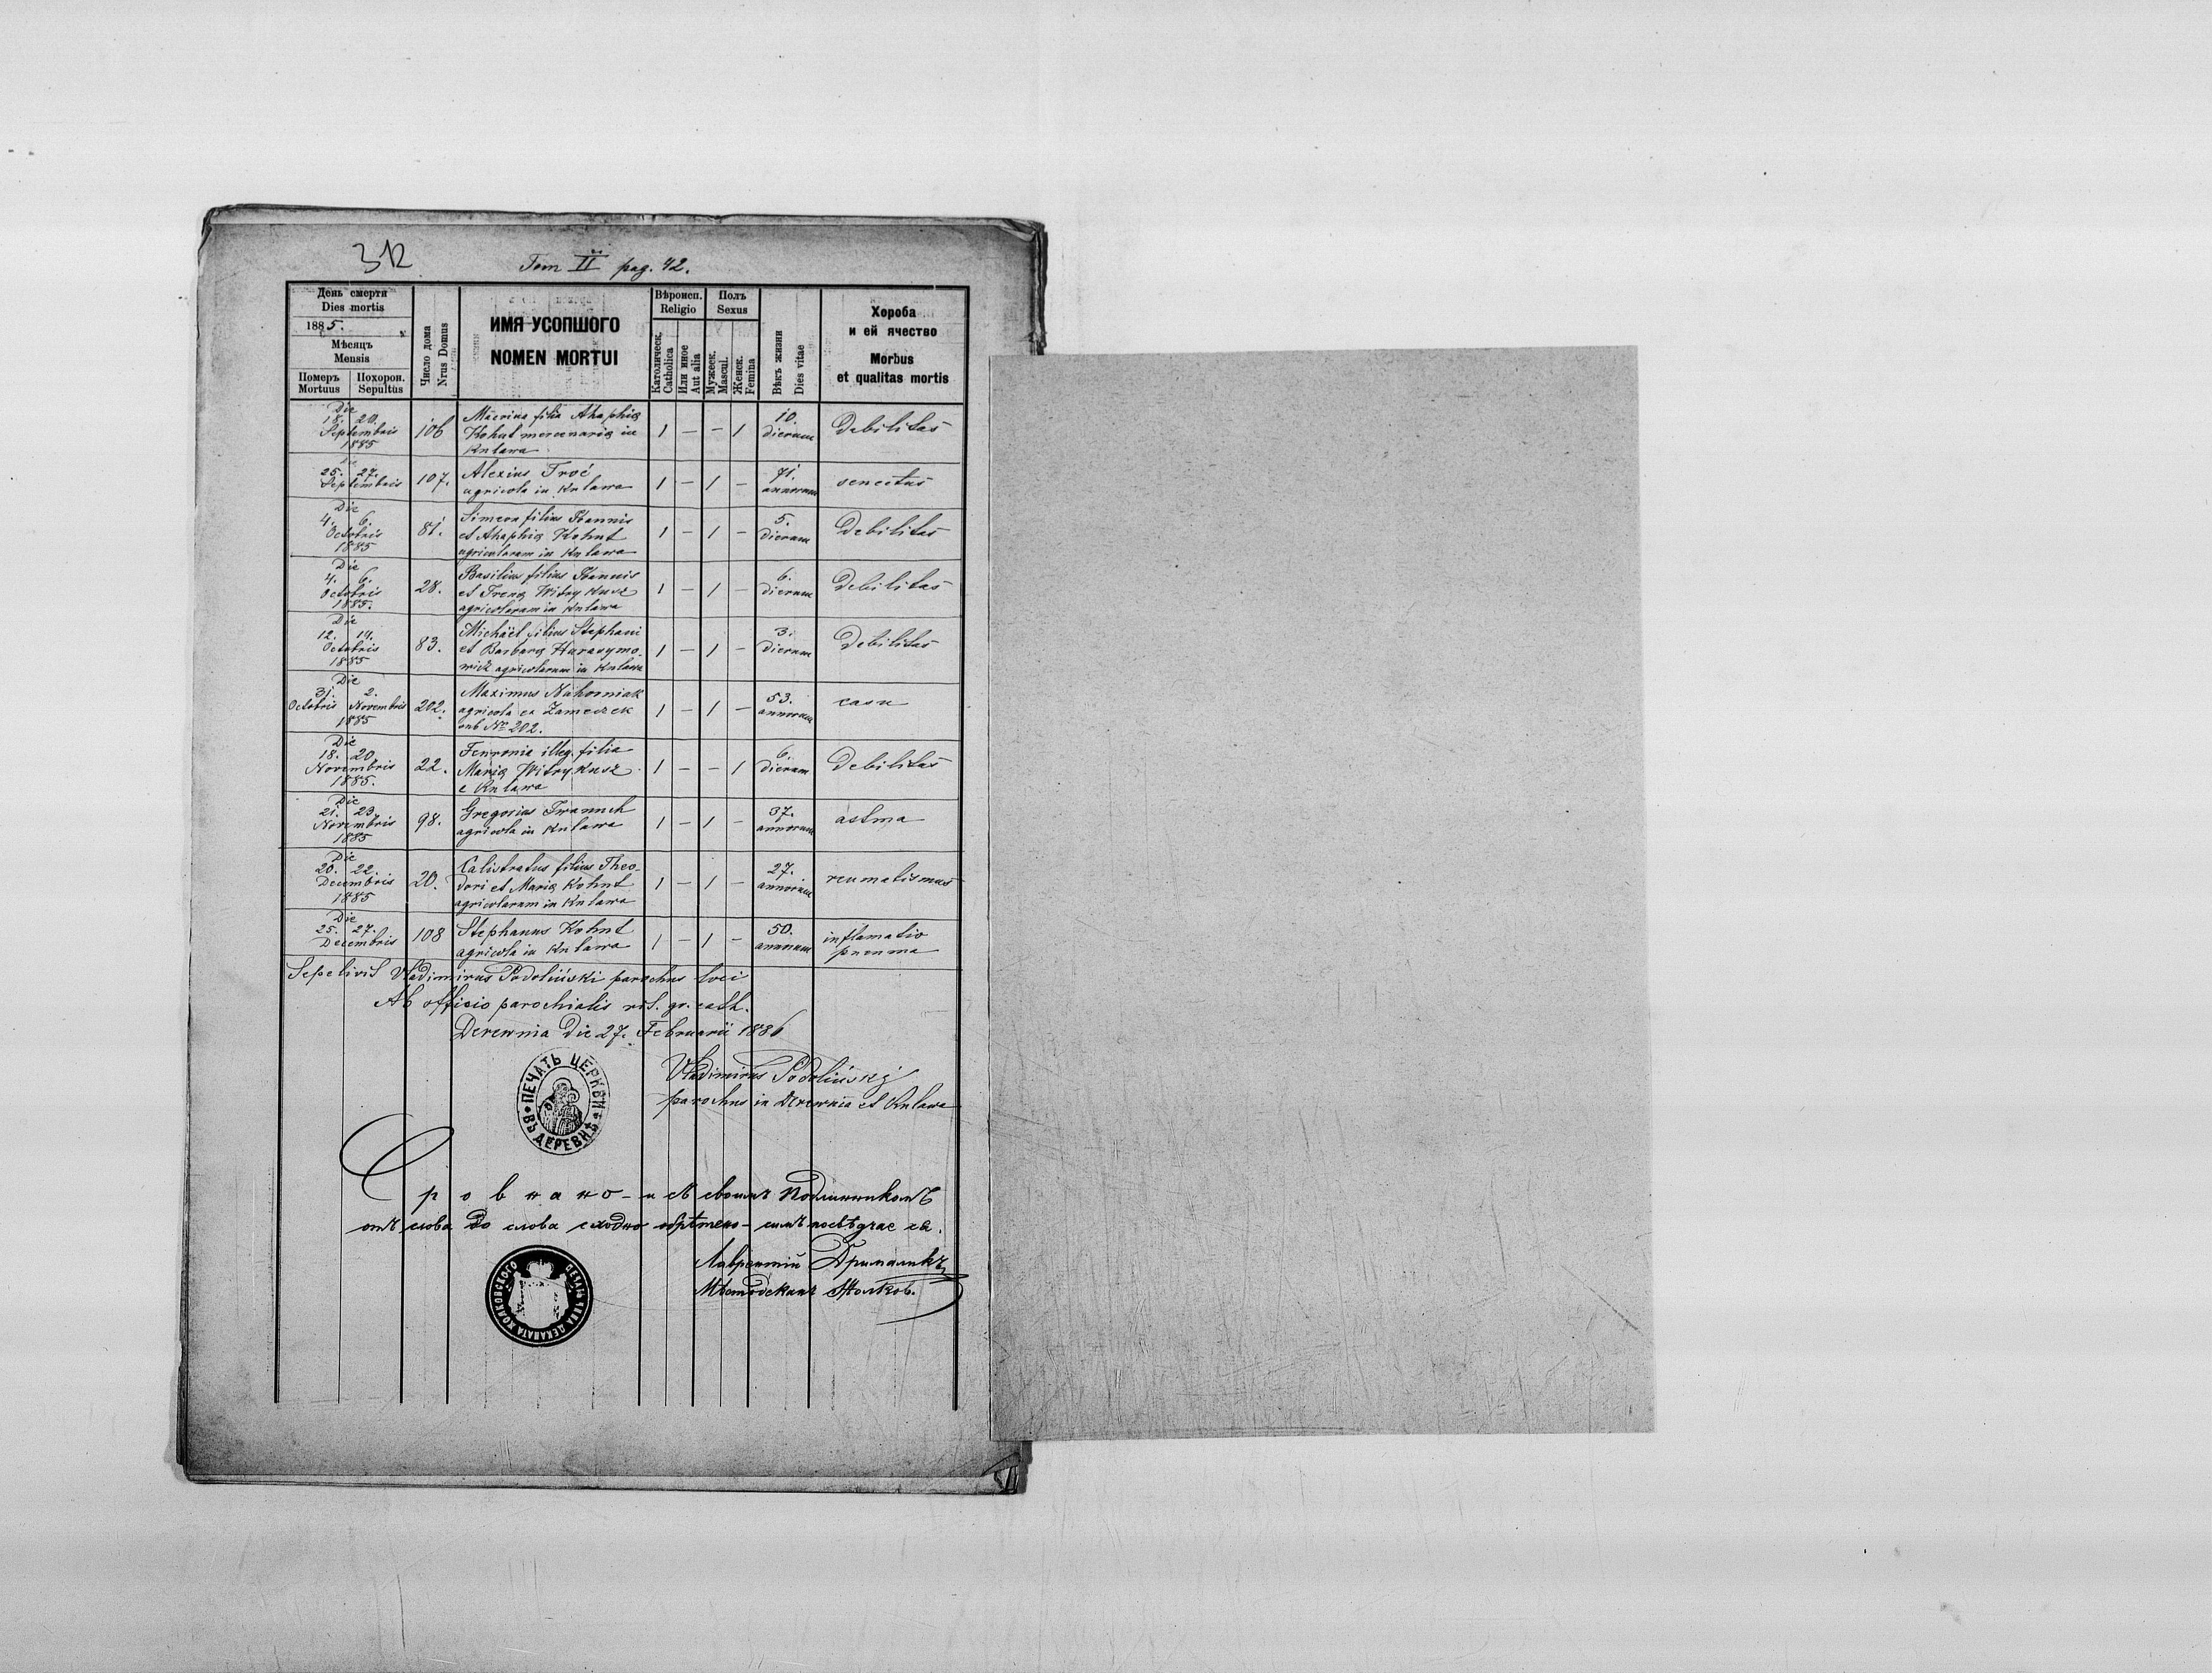 312
Tom II pag. 42.
День смерти
Dies mortis
1885.
Мѣсяцъ
Mensis
Померъ
Mortuus
Похорон.
Sepultus
Число дома
Nrus Domus
ИМЯ УСОПШОГО
NOMEN MORTUI
Вѣроисп.
Religio
Католическ.
Catholica
Или иное
Aut alia
Полъ
Sexus
Мужеск.
Mascul.
Женск.
Femina
Вѣкъ жизни
Dies vitae
Хороба
и ей ячество
Morbus
et qualitas mortis
Die 18. 20. Septembris 1885
106
Macrina filia Ahaphiæ
Kohut mercenariæ in
Kulawa
1 — — 1
10. dierum
Debilitas
25. 27. Septembris
107.
Alexius Troć
agricola in Kulawa
1 — 1 —
71. annorum
senectus
Die 4. 6. Octobris 1885
81.
Simeon filius Joannis
et Ahaphiæ Kohut
agricolarum in Kulawa
1 — 1 —
5. dierum
Debilitas
Die 4. 6. Octobris 1885.
28.
Basilius filius Joannis
et Irenæ Witrykusz
agricolarum in Kulawa
1 — 1 —
6. dierum
Debilitas
Die 12. 14. Octobris 1885
83.
Michaël filius Stephani
et Barbaræ Harasymo-
wicz agricolarum in Kulawa
1 — 1 —
3. dierum
Debilitas
Die 31. Octobris 2. Novembris 1885
202.
Maximus Nahorniak
agricola ex Zameczek
sub No 202.
1 — 1 —
53. annorum
casu
Die 18. 20. Novembris 1885.
22.
Fenronia illeg. filia
Mariæ Witrykusz
e Kulawa
1 — — 1
6. dierum
Debilitas
Die 21. 23. Novembris 1885
98.
Gregorius Iwanuch
agricola in Kulawa
1 — 1 —
37. annorum
astma
Die 20. 22. Decembris 1885
20.
Calistratus filius Theo-
dori et Mariæ Kohut
agricolarum in Kulawa
1 — 1 —
27. annorum
reumatismus
Die 25. 27. Decembris
108
Stephanus Kohut
agricola in Kulawa
1 — 1 —
50. annorum
inflamatio
pneuma
Sepelivit Vladimirus Podoliński parochus loci
Ab officio parochialis rit. gr. cath.
Derewnia die 27. Februarii 1886
Vladimirus Podoliński
parochus in Derewnia et Kulawa
ПЕЧАТЬ ЦЕРКВИ
ВЪ ДЕРЕВНѢ
Сровнано - и съ своимъ подлинникомъ
отъ слова до слова сходно обрѣтено - симъ посвѣдчае ся.
Лаврентій
Мѣстодеканъ Жолков.
ДЕКАНАТА ЖОЛКОВСКОГО